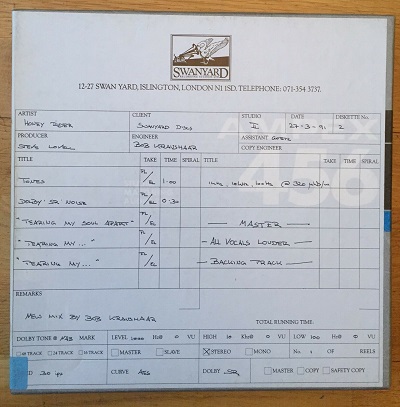 SWANYARD
12-27 SWAN YARD, ISLINGTON, LONDON N1 1SD. TELEPHONE: 071-354 3737.
ARTIST CLIENT STUDIO DATE DISKETTE No.
HONEY SWANYARD DISCS II 27-3-91 2
PRODUCER ENGINEER ASSISTANT
STEVE LOVELL BOB KRAUSHAAR COPY ENGINEER
TITLE TAKE TIME SPIRAL TITLE TAKE TIME SPIRAL
TONES 1:00 1KHz 10KHz 100Hz @ 320
DOLBY SR NOISE 0:30
"TEARING MY SOUL APART" MASTER
"TEARING MY..." ALL VOCALS LOUDER
"TEARING MY..." BACKING TRACK
AMPEX
456
REMARKS
NEW MIX BY BOB KRAUSHAAR
TOTAL RUNNING TIME:
DOLBY TONE @ MARK LEVEL 1000 Hz@ 0 VU HIGH 10 Khz@ 0 VU LOW 100 Hz@ 0 VU
48 TRACK 24 TRACK 16 TRACK MASTER SLAVE STEREO MONO No. 1 OF REELS
30 ips CURVE AES DOLBY SR MASTER COPY SAFETY COPY